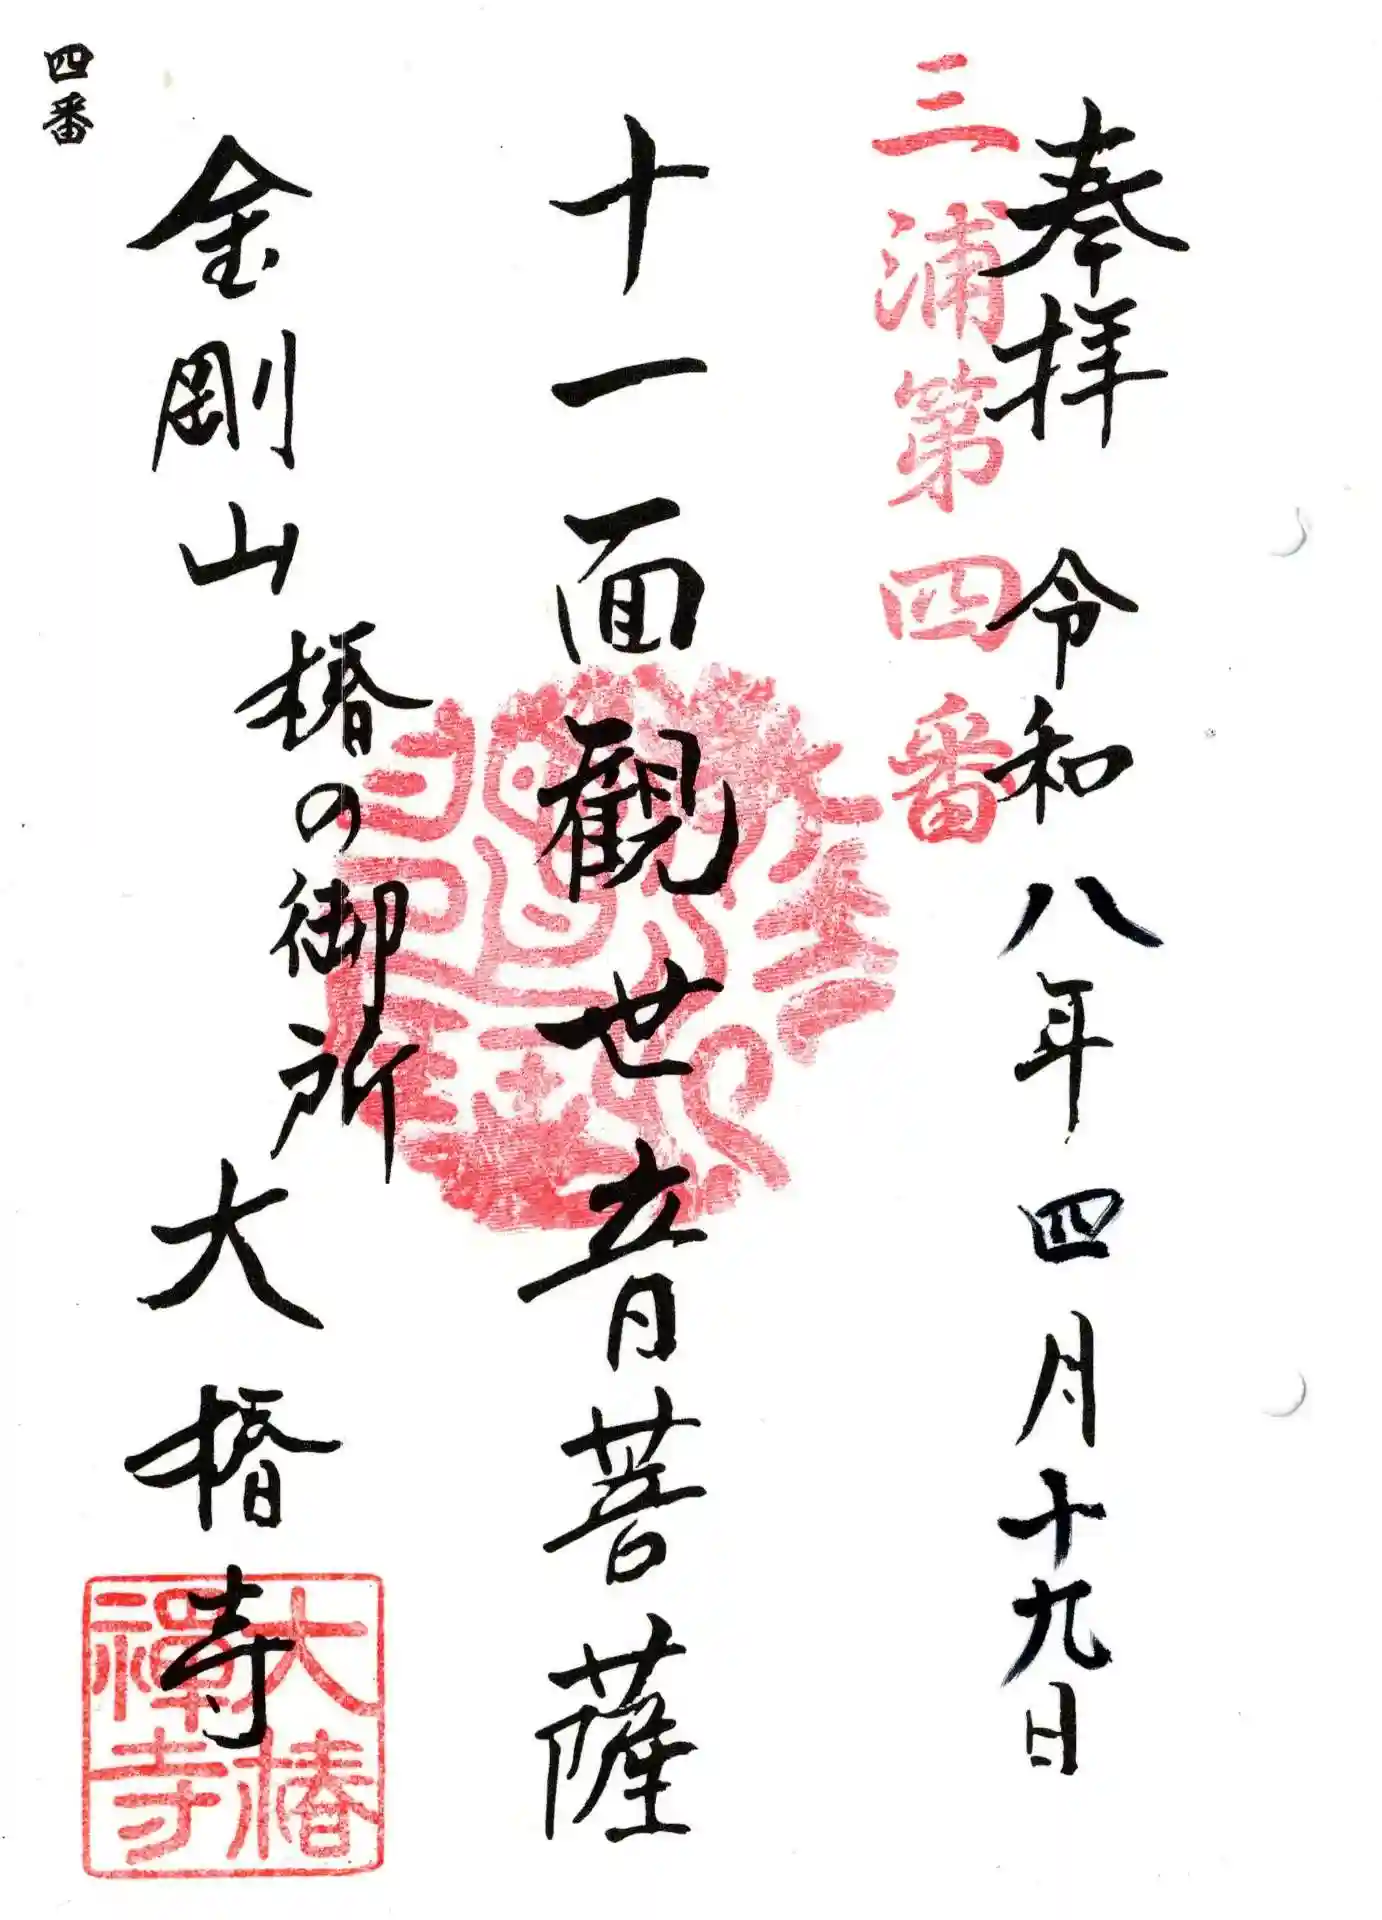 奉拝 令和八年四月十九日
三浦第四番
十一面観世音菩薩
金剛山 椿の御所 大椿寺
大椿禅寺
四番